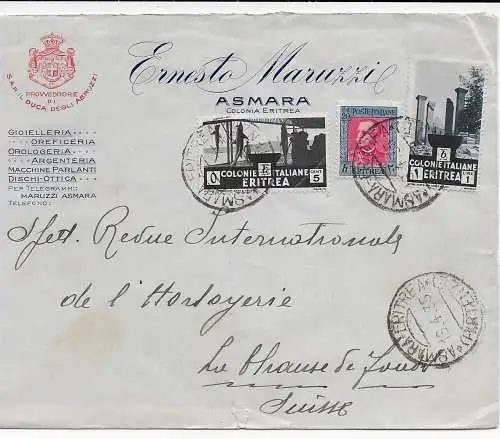 Ernesto Maruzzi
ASMARA
COLONIA ERITREA
PROVVEDITORE
DI
S.A.R. IL DUCA DEGLI ABRUZZI
GIOIELLERIA
OREFICERIA
OROLOGERIA
ARGENTERIA
MACCHINE PARLANTI
DISCHI-OTTICA
PER TELEGRAMMI:
MARUZZI ASMARA
TELEFONO:
COLONIE ITALIANE
ERITREA
CENT 5
20 POSTE ITALIANE
ERITREA
COLONIE ITALIANE
1 ERITREA LIRE 1
ASMARA
ASMARA
ASMARA ERITREA
Spett. Revue Internationale
de l'Horlogerie
La Chause de Fonds
Suisse